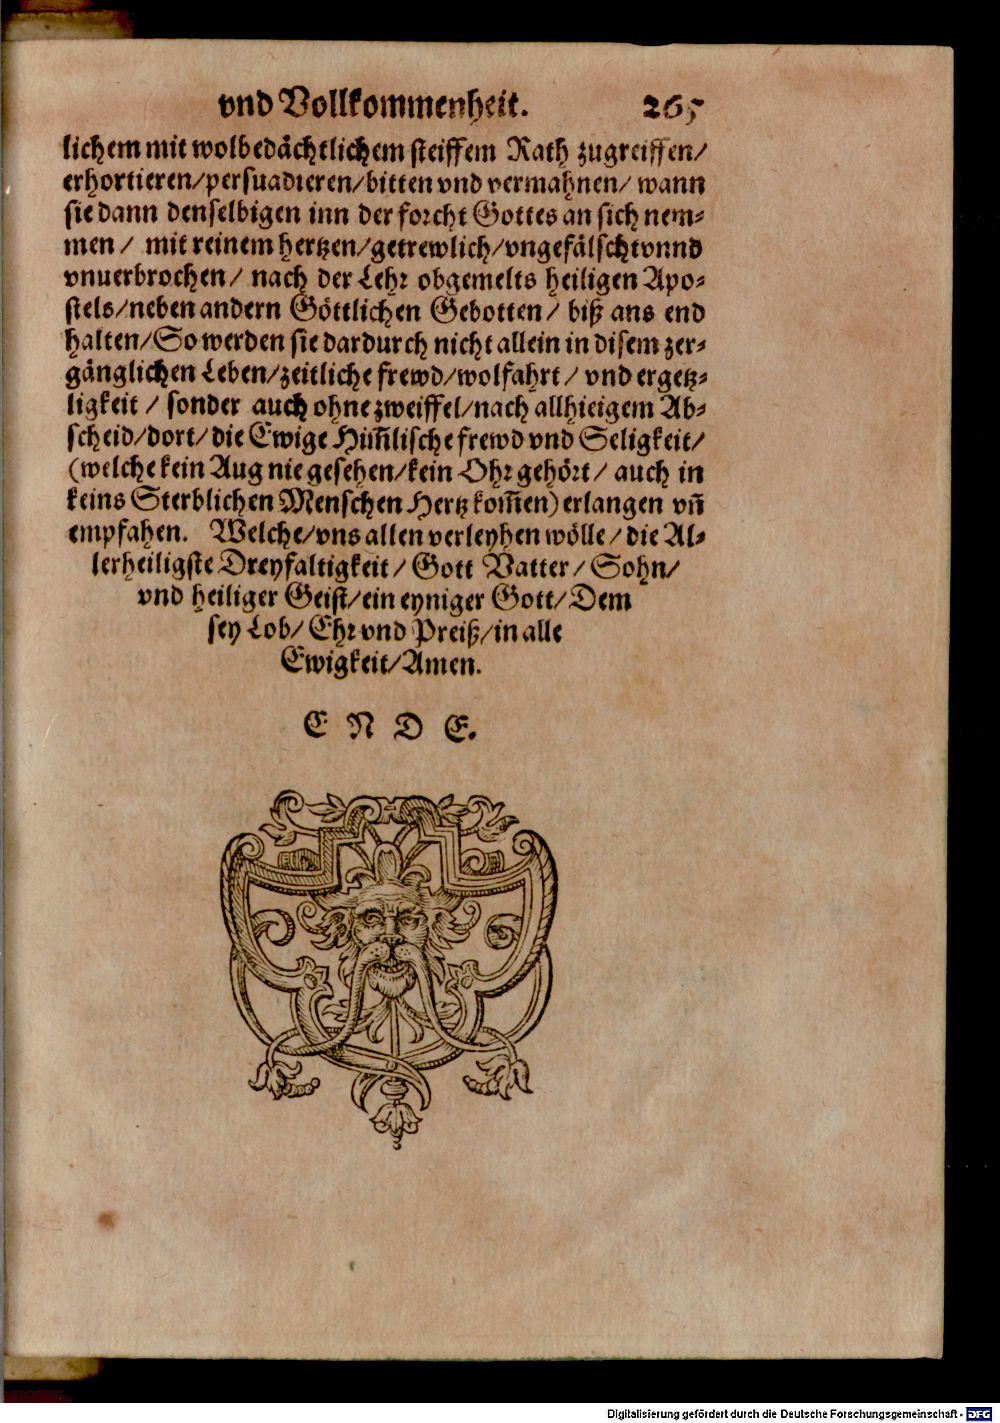 vnd Vollkommenheit. 265
lichem mit wolbedächtlichem steiffem Rath zugreiffen/
erhortieren/persuadieren/bitten vnd vermahnen/ wann
sie dann denselbigen inn der forcht Gottes an sich nem⸗
men / mit reinem hertzen/getrewlich/vngefälscht vnnd
vnuerbrochen/ nach der Lehr obgemelts heiligen Apo⸗
stels/neben andern Göttlichen Gebotten/ biß ans end
halten/So werden sie dardurch nicht allein in disem zer⸗
gänglichen Leben/zeitliche frewd/wolfahrt/ vnd ergetz⸗
ligkeit / sonder auch ohne zweiffel/nach allhieigem Ab⸗
scheid/dort/die Ewige Him̃lische frewd vnd Seligkeit/
(welche kein Aug nie gesehen/kein Ohr gehört/ auch in
keins Sterblichen Menschen Hertz kom̃en) erlangen vñ
empfahen. Welche/vns allen verleyhen wölle/ die Al⸗
lerheiligste Dreyfaltigkeit/ Gott Vatter/ Sohn/
vnd heiliger Geist/ein eyniger Gott/Dem
sey Lob/ Ehr vnd Preiß/in alle
Ewigkeit/Amen.
E N D E.
Digitalisierung gefördert durch die Deutsche Forschungsgemeinschaft - DFG